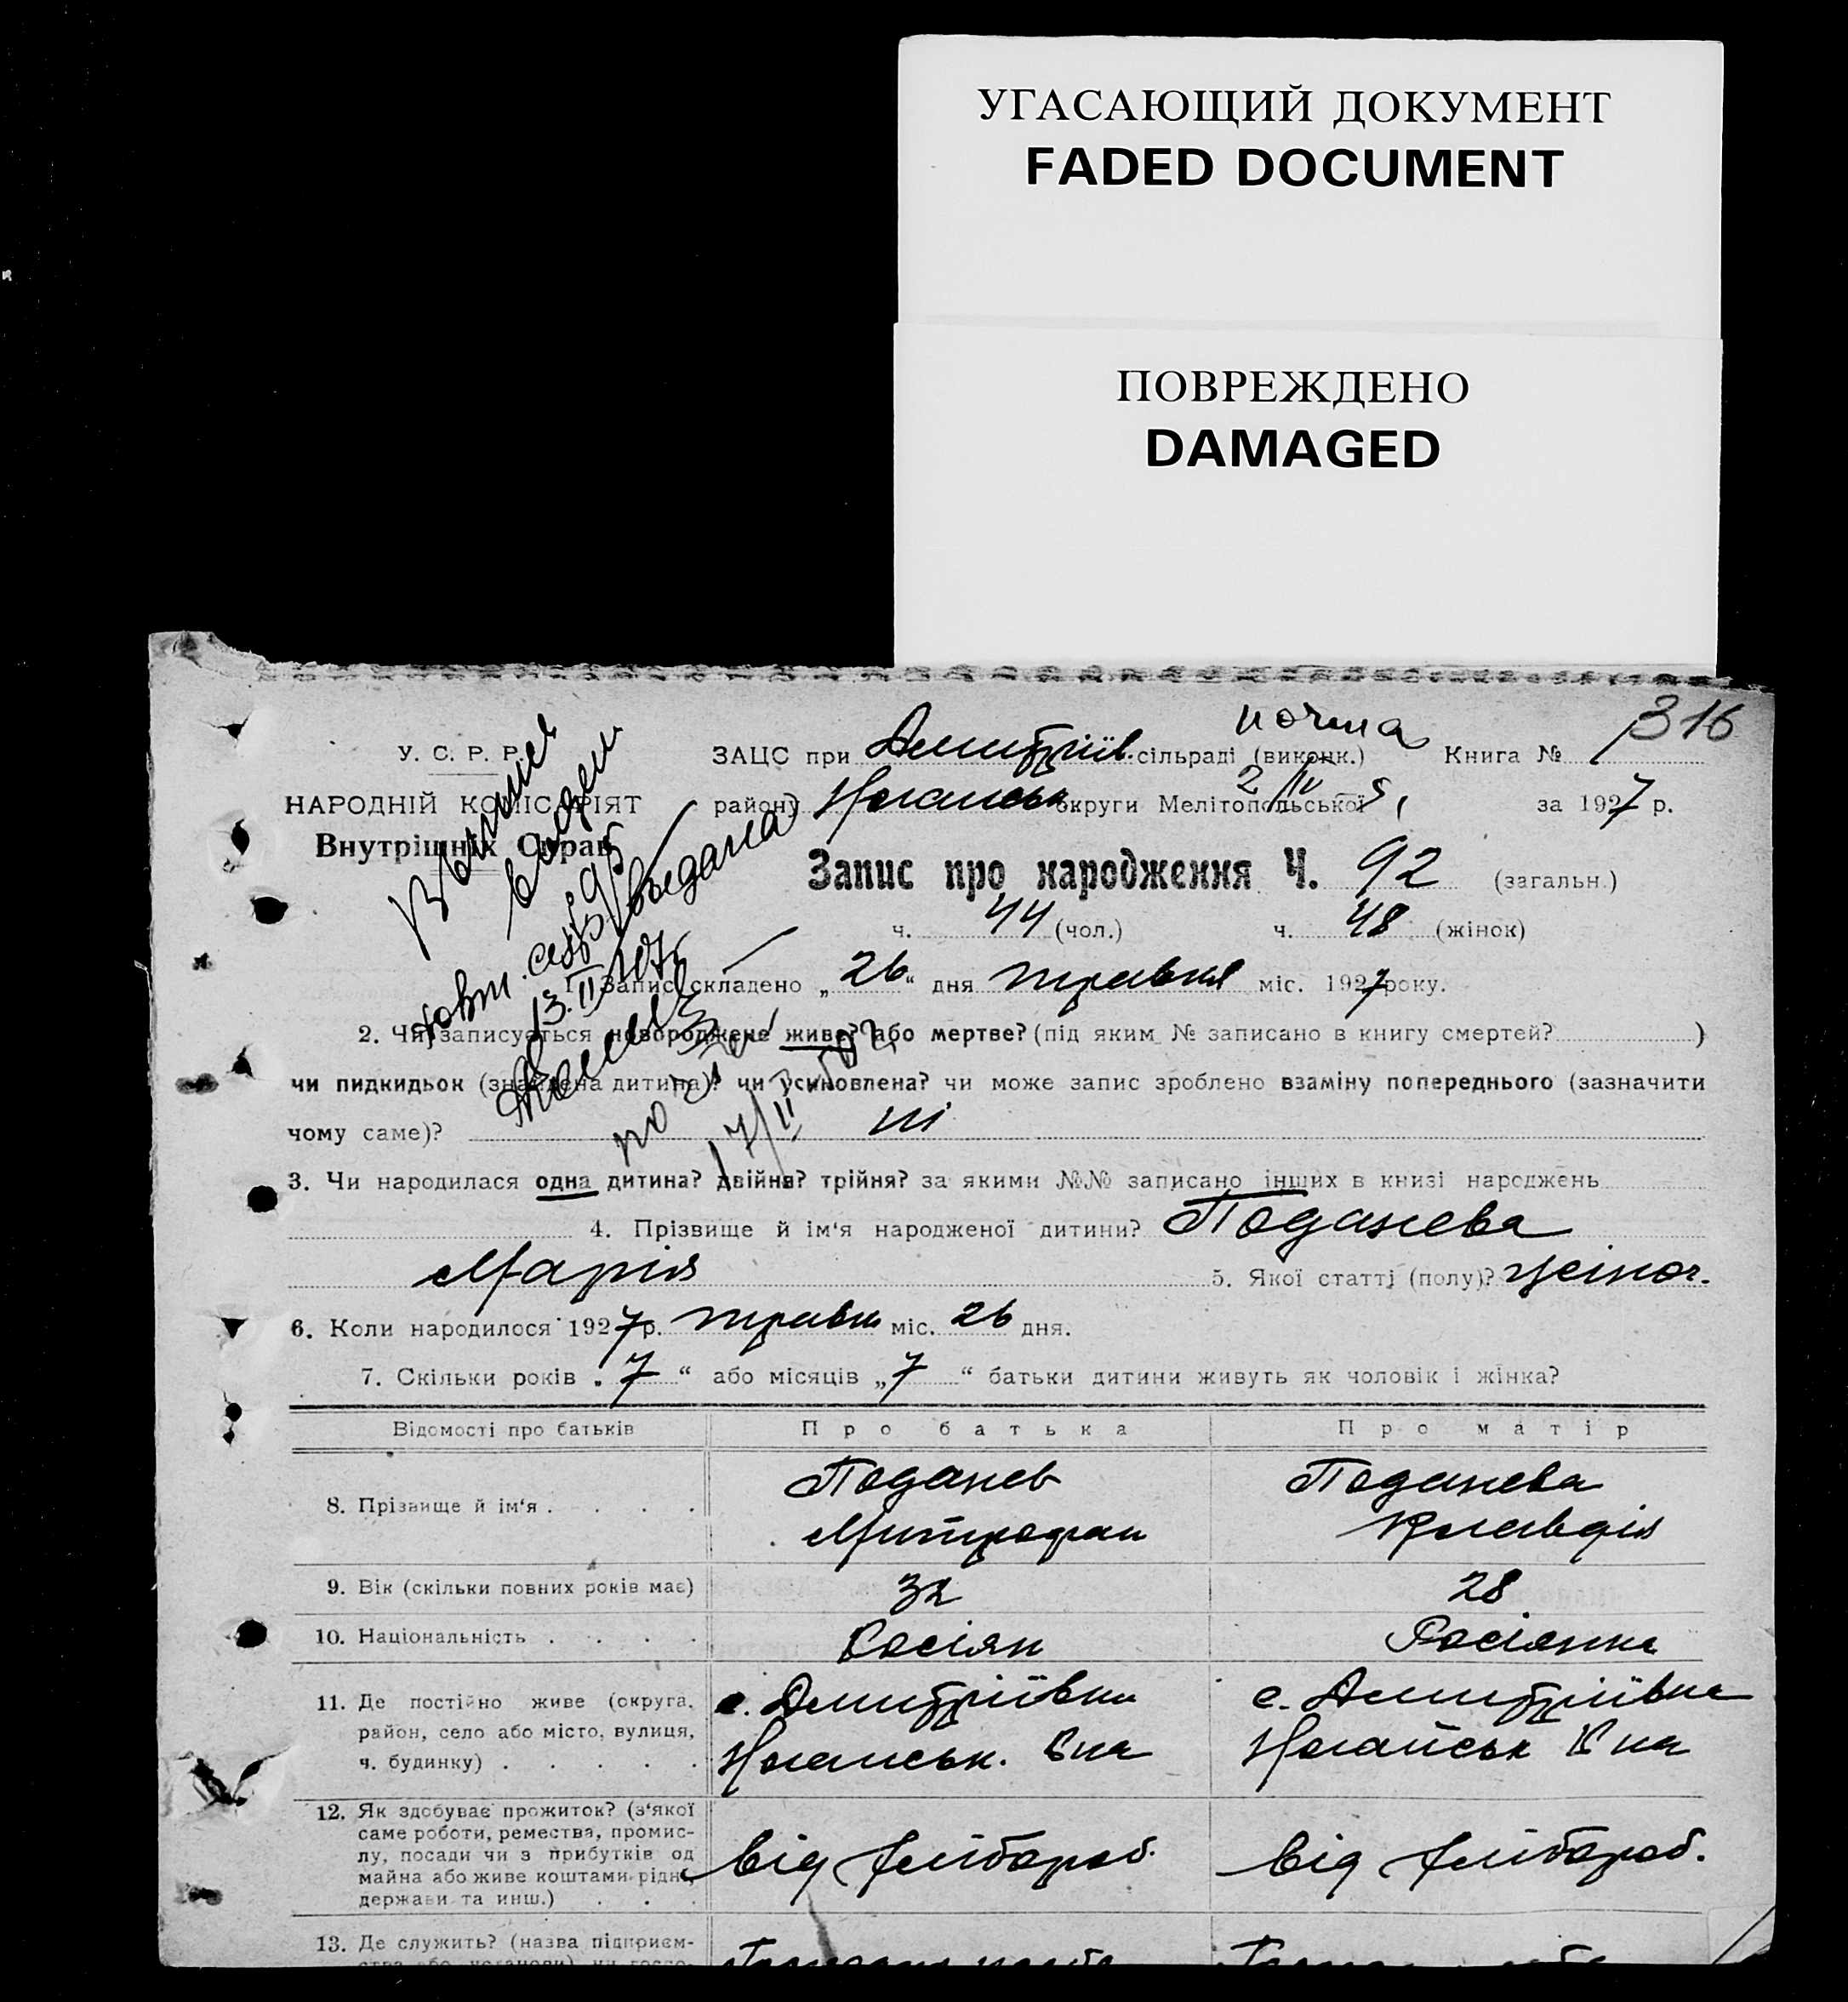 УГАСАЮЩИЙ ДОКУМЕНТ
FADED DOCUMENT
ПОВРЕЖДЕНО
DAMAGED
316
почта
У. С. Р. Р.
НАРОДНІЙ КОМІСАРІЯТ
Внутрішніх Справ
ЗАЦС при Дмитріїв. сільраді (виконк.) Книга №
району Ногайськ округи Мелітопольської за 1927 р.
Запис про народження Ч. 92 (загальн.)
ч. 44 (чол.) ч. 48 (жінок)
выдана
13.II
17/II
1. Запис складено „26“ дня травня міс. 1927 року.
2. Чи записується новороджене живе? або мертве? (під яким № записано в книгу смертей? )
чи пидкидьок (знайдена дитина)? чи усиновлена? чи може запис зроблено взаміну попереднього (зазначити
чому саме)? ні
3. Чи народилася одна дитина? двійня? трійня? за якими №№ записано інших в книзі народжень
4. Прізвище й ім‘я народженої дитини? Поданева
Марія 5. Якої статті (полу)? жіноч.
6. Коли народилося 1927 р. травн міс. 26 дня.
7. Скільки років „7“ або місяців „7“ батьки дитини живуть як чоловік і жінка?
Відомості про батьків Про батька Про матір
8. Прізвище й ім‘я . . . . Поданев Поданева
Митрофан Клавдія
9. Вік (скільки повних років має) 32 28
10. Національність . . . . Росіян Росіянка
11. Де постійно живе (округа, с. Дмитріївка с. Дмитріївка
район, село або місто, вулиця,
ч. будинку) . . . . . Ногайськ. Р на Ногайськ Р на
12. Як здобуває прожиток? (з‘якої
саме роботи, ремества, промис-
лу, посади чи з прибутків од від хлібороб. від хлібороб.
майна або живе коштами рідні,
держави та инш.) . . .
13. Де служить? (назва підприєм-